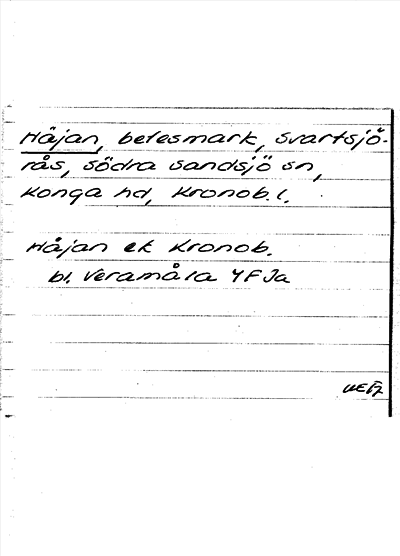 Håjan, betesmark, Svartsjö-
rås, Södra Sandsjö sn,
Konga hd, Kronob. l.
Håjan ek Kronob.
bl. Veramåla YFJa